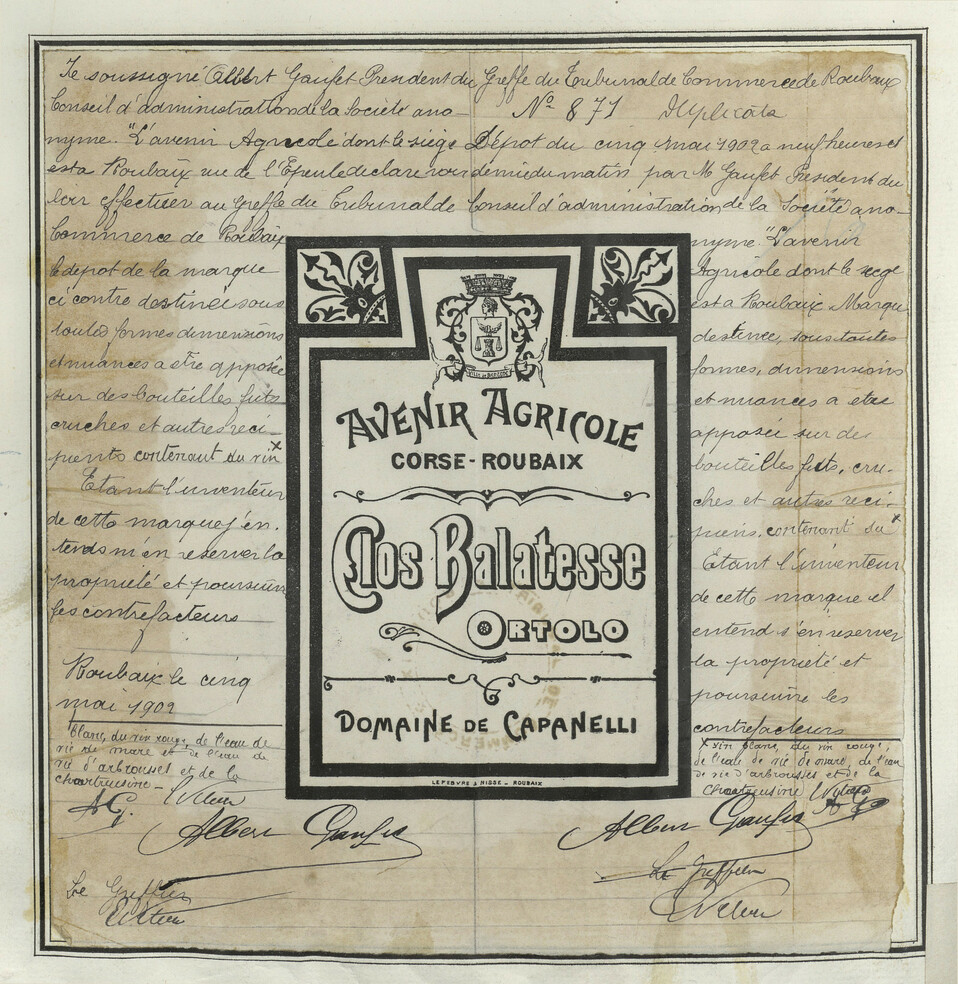 Je soussigné Albert Gaufet President du
Conseil d'administration de la Société ano-
nyme "L'avenir Agricole dont le siège
est a Roubaix rue de l'Epeule declare vou-
loir effectuer au greffe du Tribunal de
Commerce de Roubaix
le depot de la marque
ci contre destinée sous
toutes formes dimensions
et nuances a etre apposée
sur des bouteilles futs
cruches et autres reci-
pients contenant du vin x
Etant l'inventeur
de cette marque j'en-
tends m'en reserver la
propriété et poursuivre
les contrefacteurs
Roubaix le cinq
mai 1902
blanc, du vin rouge, de l'eau de
vie de marc et de l'eau de
vie d'arbouses et de la
Chartreusine -
AG.
Albert Gaufet
Le Greffier
Greffe du Tribunal de Commerce de Roubaix
N° 871 Duplicata
Dépot du cinq mai 1902 a neuf heures et
demie du matin par M Gaufet President du
Conseil d'administration de la Société ano-
nyme "L'avenir
Agricole dont le siege
est a Roubaix Marque
destinée, sous toutes
formes, dimensions
et nuances a etre
apposée sur des
bouteilles futs, cru-
ches et autres reci-
piens contenant du x
Etant l'inventeur
de cette marque il
entend s'en reserver
la propriété et
poursuivre les
contrefacteurs
x vin blanc, du vin rouge,
de l'eau de vie de marc, de l'eau
de vie d'arbouses et de la
Chartreusine
AG
Albert Gaufet
Le Greffier
AVENIR AGRICOLE
CORSE-ROUBAIX
Clos Balatesse
ORTOLO
DOMAINE DE CAPANELLI
LEFEBVRE & NISSE - ROUBAIX